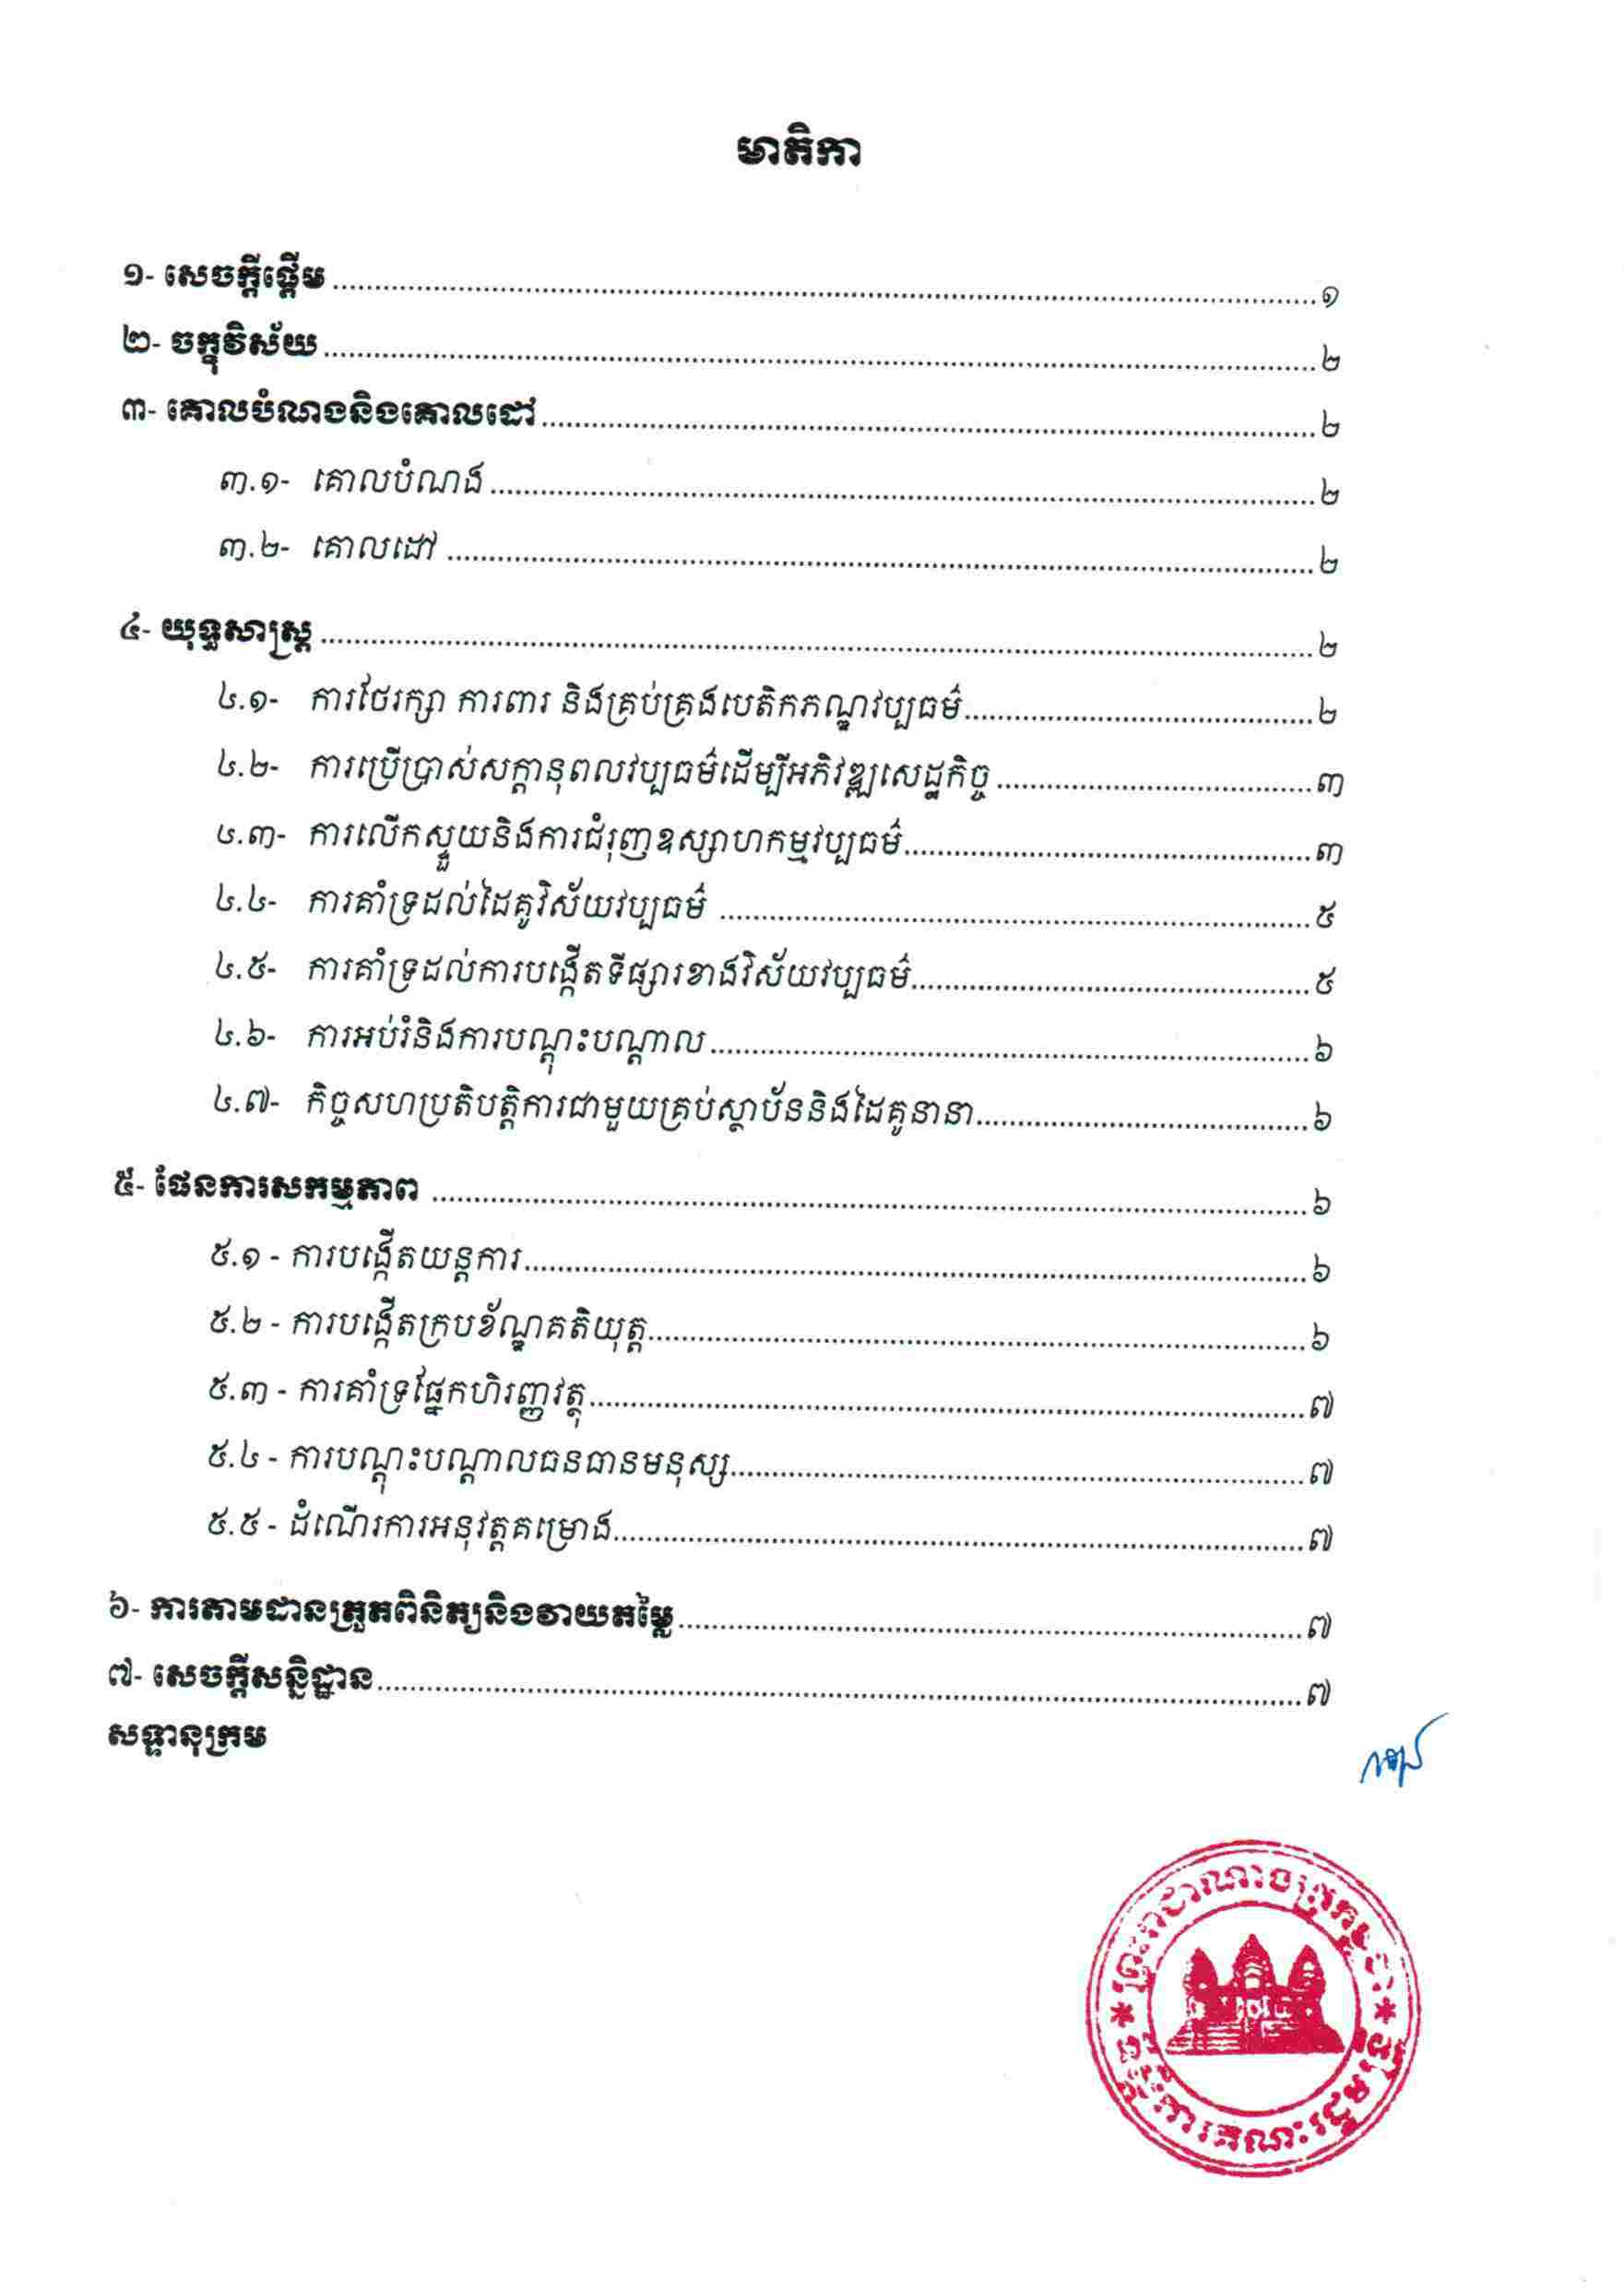 មាតិកា
១- សេចក្តីផ្តើម ........ ១
២- ចក្ខុវិស័យ ........ ២
៣- គោលបំណងនិងគោលដៅ ........ ២
៣.១- គោលបំណង ........ ២
៣.២- គោលដៅ ........ ២
៤- យុទ្ធសាស្ត្រ ........ ២
៤.១- ការថែរក្សា ការពារ និងគ្រប់គ្រងបេតិកភណ្ឌវប្បធម៌ ........ ២
៤.២- ការប្រើប្រាស់សក្តានុពលវប្បធម៌ដើម្បីអភិវឌ្ឍសេដ្ឋកិច្ច ........ ៣
៤.៣- ការលើកស្ទួយនិងការជំរុញឧស្សាហកម្មវប្បធម៌ ........ ៣
៤.៤- ការគាំទ្រដល់ដៃគូវិស័យវប្បធម៌ ........ ៥
៤.៥- ការគាំទ្រដល់ការបង្កើតទីផ្សារខាងវិស័យវប្បធម៌ ........ ៥
៤.៦- ការអប់រំនិងការបណ្តុះបណ្តាល ........ ៦
៤.៧- កិច្ចសហប្រតិបត្តិការជាមួយគ្រប់ស្ថាប័ននិងដៃគូនានា ........ ៦
៥- ផែនការសកម្មភាព ........ ៦
៥.១ - ការបង្កើតយន្តការ ........ ៦
៥.២ - ការបង្កើតក្របខ័ណ្ឌគតិយុត្ត ........ ៦
៥.៣ - ការគាំទ្រផ្នែកហិរញ្ញវត្ថុ ........ ៧
៥.៤ - ការបណ្តុះបណ្តាលធនធានមនុស្ស ........ ៧
៥.៥ - ដំណើរការអនុវត្តគម្រោង ........ ៧
៦- ការតាមដានត្រួតពិនិត្យនិងវាយតម្លៃ ........ ៧
៧- សេចក្តីសន្និដ្ឋាន ........ ៧
សទ្ទានុក្រម
ព្រះរាជាណាចក្រកម្ពុជា
ទីស្តីការគណៈរដ្ឋមន្ត្រី